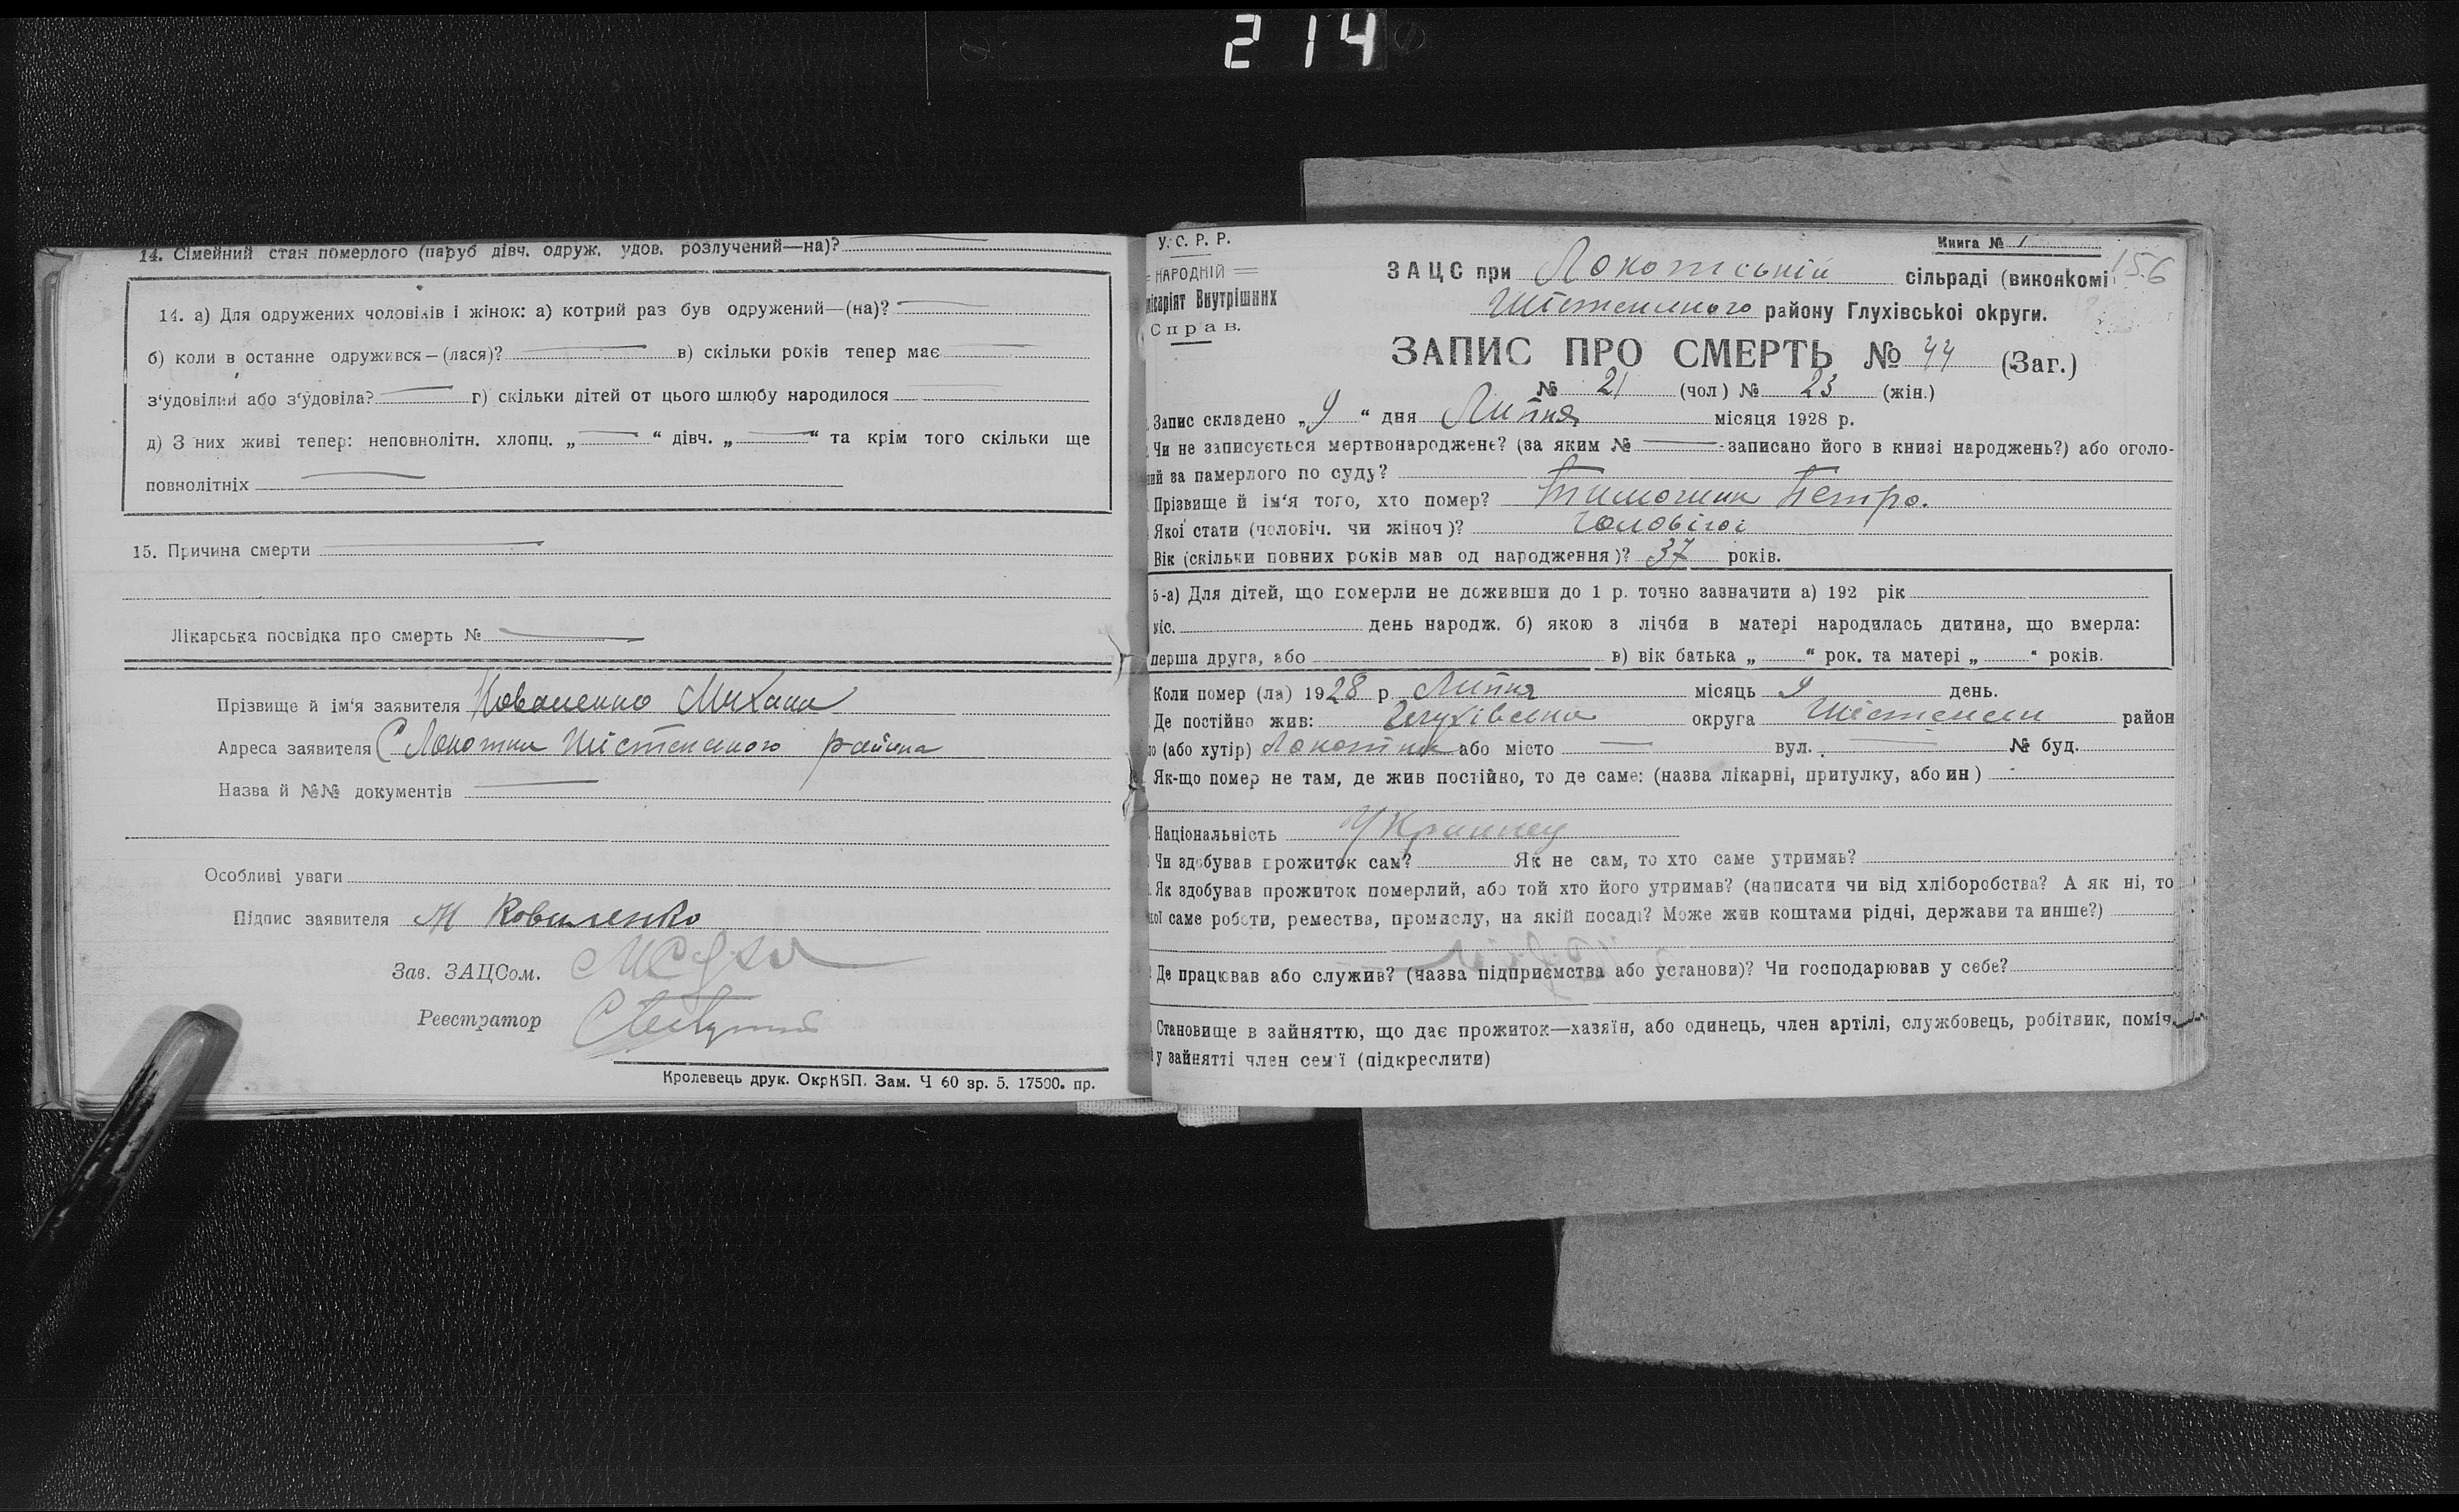 214
14. Сімейний стан померлого (паруб дівч. одруж. удов. розлучений—на)?
14. а) Для одружених чоловіків і жінок: а) котрий раз був одружений—(на)?
б) коли в останнє одружився—(лася)? в) скільки років тепер має
з‘удовілий або з‘удовіла? г) скільки дітей от цього шлюбу народилося
д) З них живі тепер: неповнолітн. хлопц. „ “ дівч. „ “ та крім того скільки ще
повнолітніх
15. Причина смерти
Лікарська посвідка про смерть №
Прізвище й ім‘я заявителя Коваленко Михаил
Адреса заявителя С Локотки Шістенського района
Назва й №№ документів
Особливі уваги
Підпис заявителя М Коваленко
Зав. ЗАЦСом.
Реєстратор
Кролевець друк. ОкрКВП. Зам. Ч 60 зр. 5. 17500. пр.
У. С. Р. Р.
НАРОДНІЙ
місаріят Внутрішних
Справ.
Книга № 1
156
ЗАЦС при Локотській сільраді (виконкомі
Шістенського району Глухівської округи.
ЗАПИС ПРО СМЕРТЬ № 44 (Заг.)
№ 21 (чол) № 23 (жін.)
Запис складено „9“ дня Липня місяця 1928 р.
Чи не записується мертвонароджене? (за яким № записано його в книзі народжень?) або оголо-
ний за памерлого по суду?
Прізвище й ім‘я того, хто помер? Тимошик Петро.
Якої стати (чоловіч. чи жіноч)? Чоловічої
Вік (скільки повних років мав од народження)? 37 років.
5-а) Для дітей, що померли не доживши до 1 р. точно зазначити а) 192 рік
міс. день народж. б) якою з лічби в матері народилась дитина, що вмерла:
перша друга, або в) вік батька „ “ рок. та матері „ “ років.
Коли помер (ла) 1928 р. Липня місяць 9 день.
Де постійно жив: Глухівська округа Шістенськ район
ло (або хутір) Локотки або місто вул. № буд.
Як-що помер не там, де жив постійно, то де саме: (назва лікарні, притулку, або ин)
Національність Украинец
Чи здобував прожиток сам? Як не сам, то хто саме утримав?
Як здобував прожиток померлий, або той хто його утримав? (написати чи від хліборобства? А як ні, то
кої саме роботи, ремества, промислу, на якій посаді? Може жив коштами рідні, держави та инше?)
Де працював або служив? (назва підприємства або установи)? Чи господарював у себе?
Становище в зайняттю, що дає прожиток—хазяїн, або одинець, член артілі, службовець, робітник, поміч.
у зайнятті член сем‘ї (підкреслити)